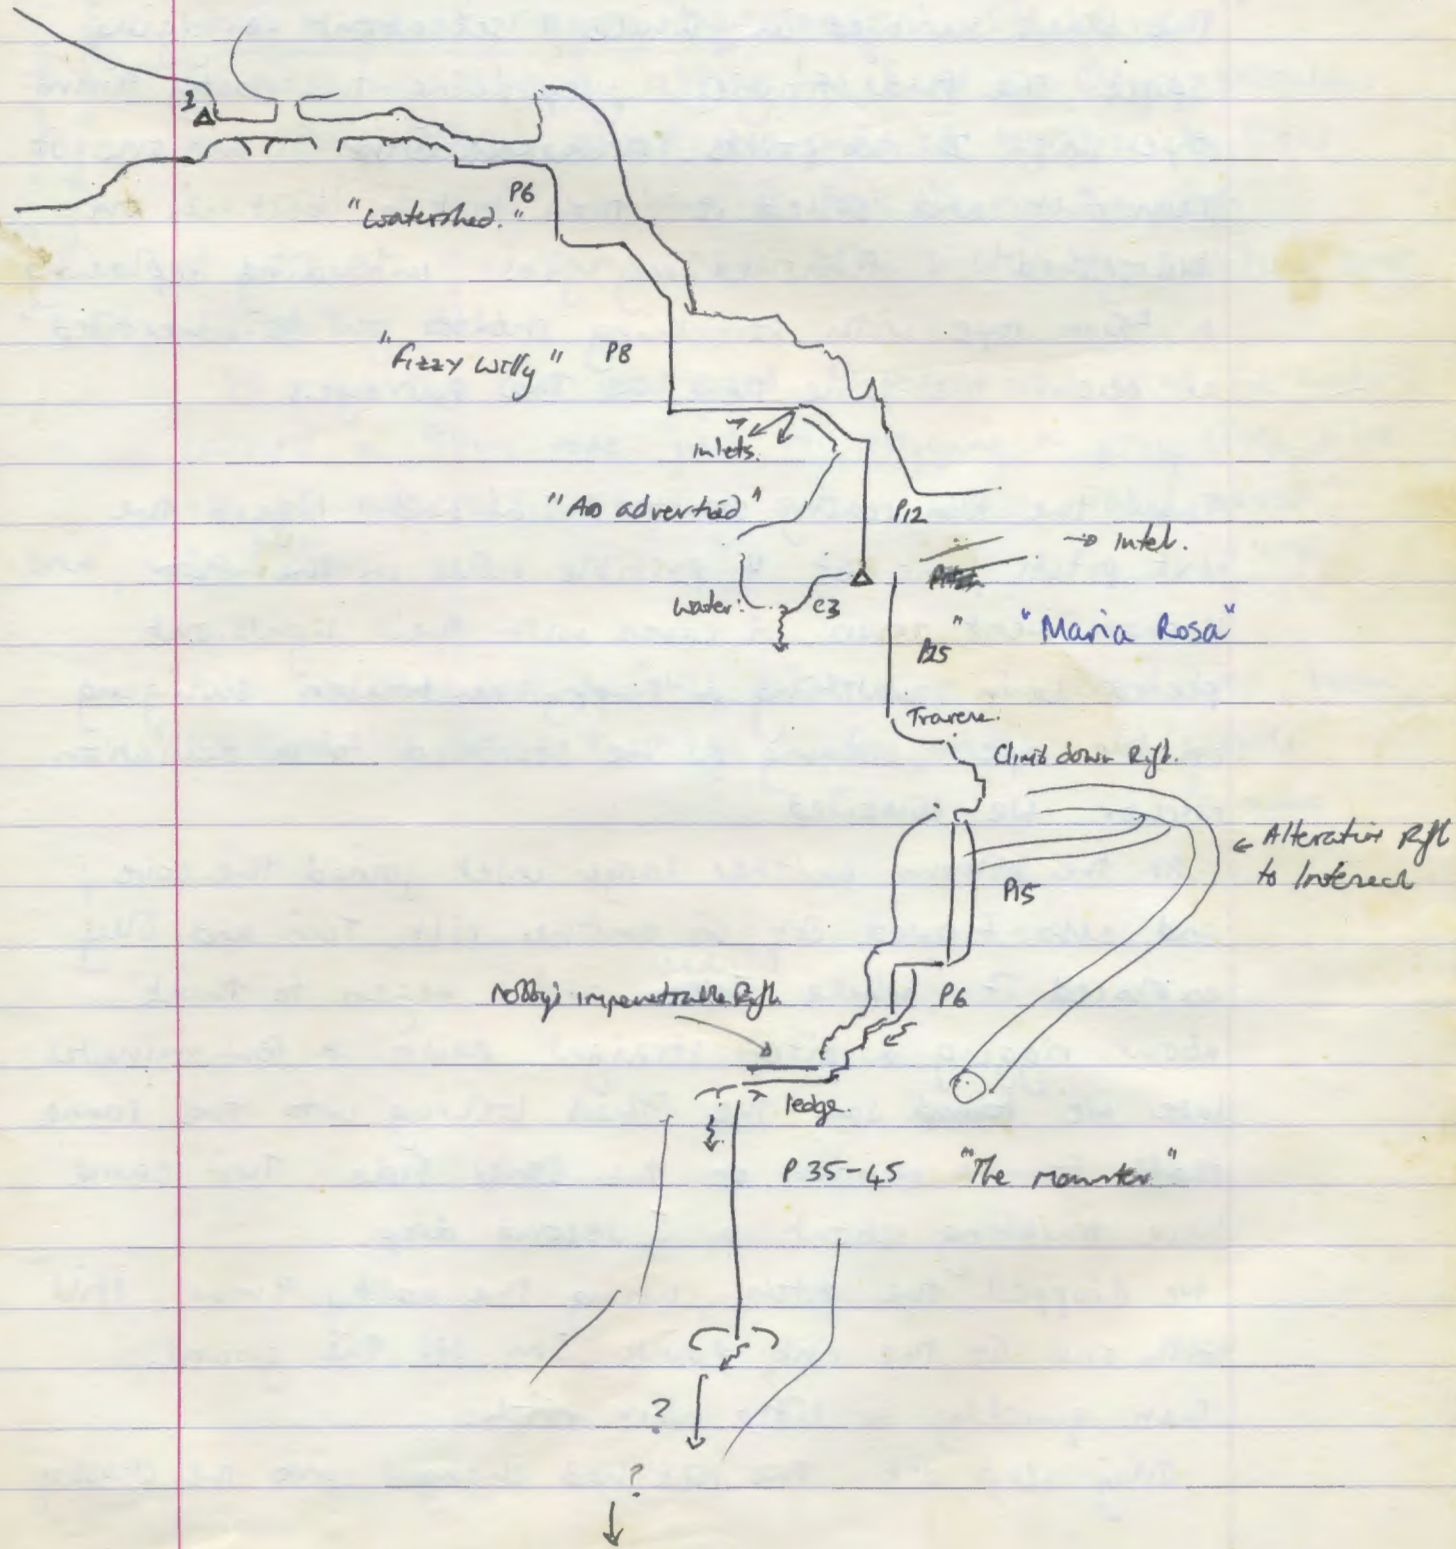 2
P6
"Watershed."
"Fizzy Willy" P8
Inlets.
"As advertised"
P12
→ Inlet.
Water.
C3
P25
"Maria Rosa"
Traverse.
Climb down Rift.
← Alternative Rift
to Intersect
P15
Nobby's impenetrable Rift
P6
ledge.
P 35-45 "The Monster"
?
?